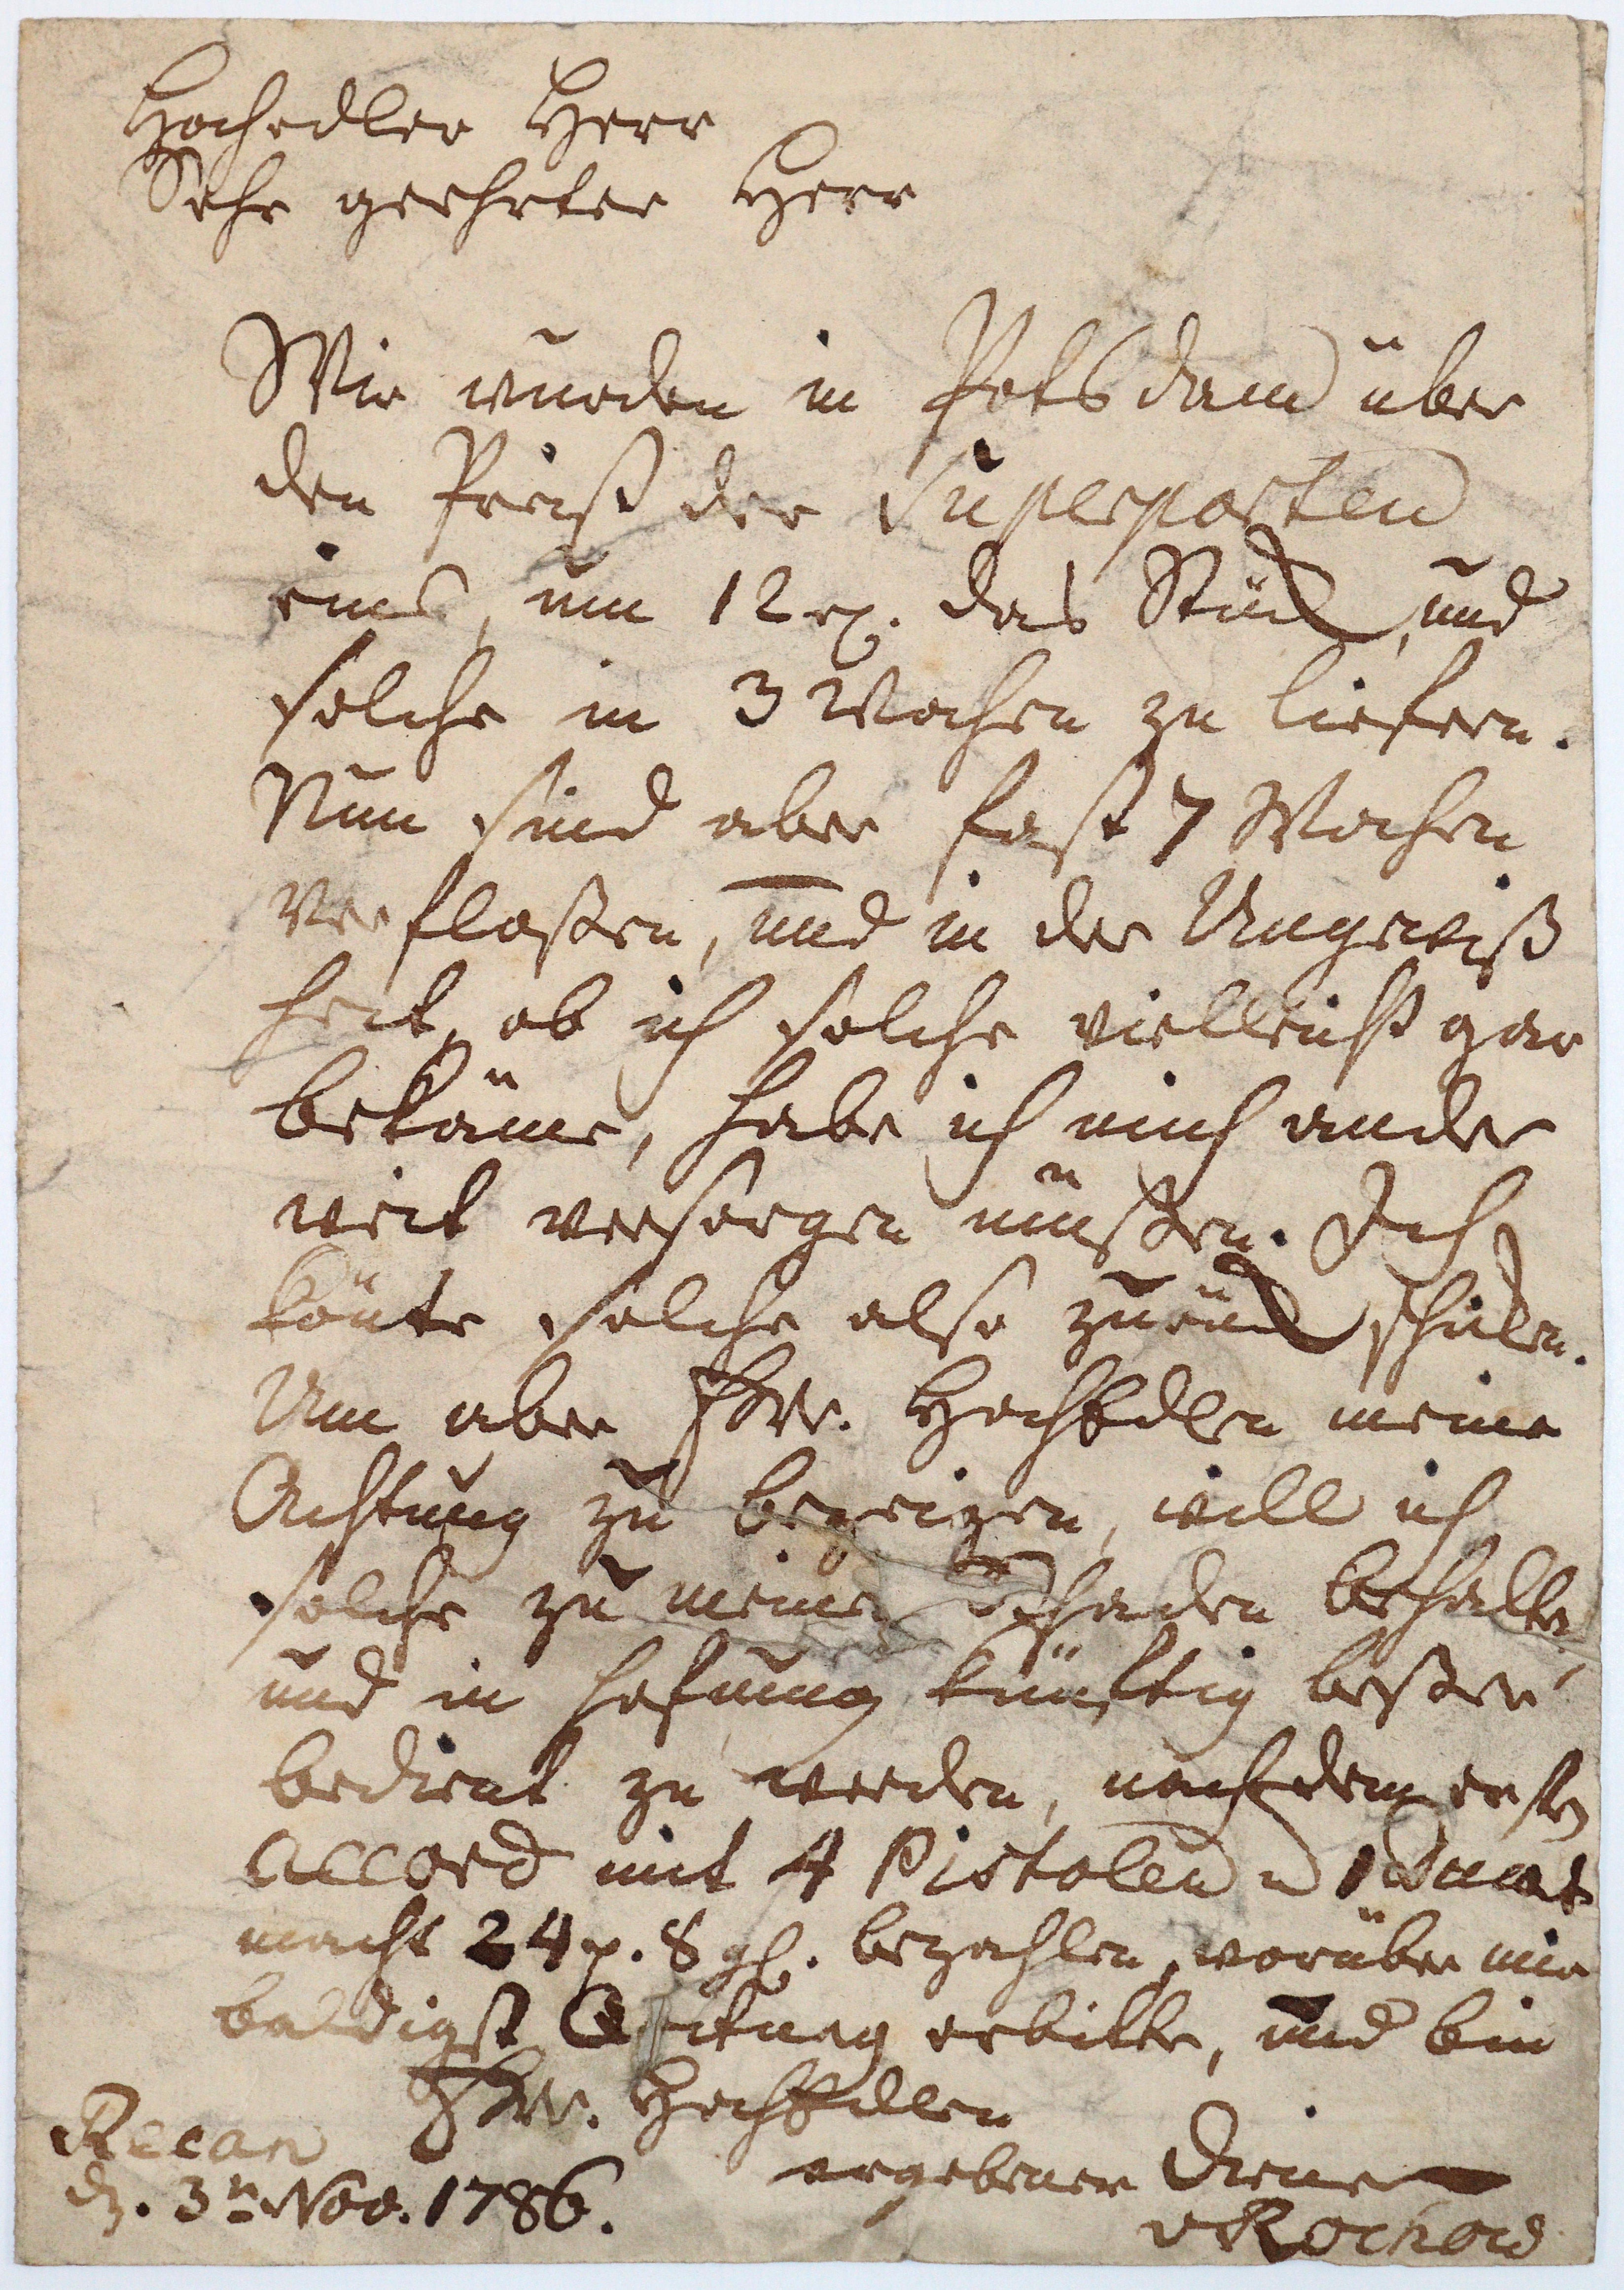 Hochedler Herr
Sehr geehrter Herr
Wir wurden in Potsdam über
den Preiß der Superporten
eins, um 12 rh. das Stück, und
solche in 3 Wochen zu liefern.
Nun sind aber fast 7 Wochen
verfloßen, und in der Ungewiß
heit, ob ich solche vielleicht gar
bekäme, habe ich mich ander
weit versorgen müßen. Ich
könte solche also zurück schiken.
Um aber Ew. HochEdlen meine
Achtung zu bezeigen, will ich
solche zu meinen Schaden behalten,
und in Hofnung künftig beßer
bedient zu werden, nach dem ersten
Accord mit 4 Pistolen u 1 Ducat
macht 24 r. 8 gl. bezahlen, worüber mir
baldigst Quitung erbitte, und bin
Ew. HochEdlen
Recan
ergebener Diener
dn. 3n Nov. 1786.
v Rochow